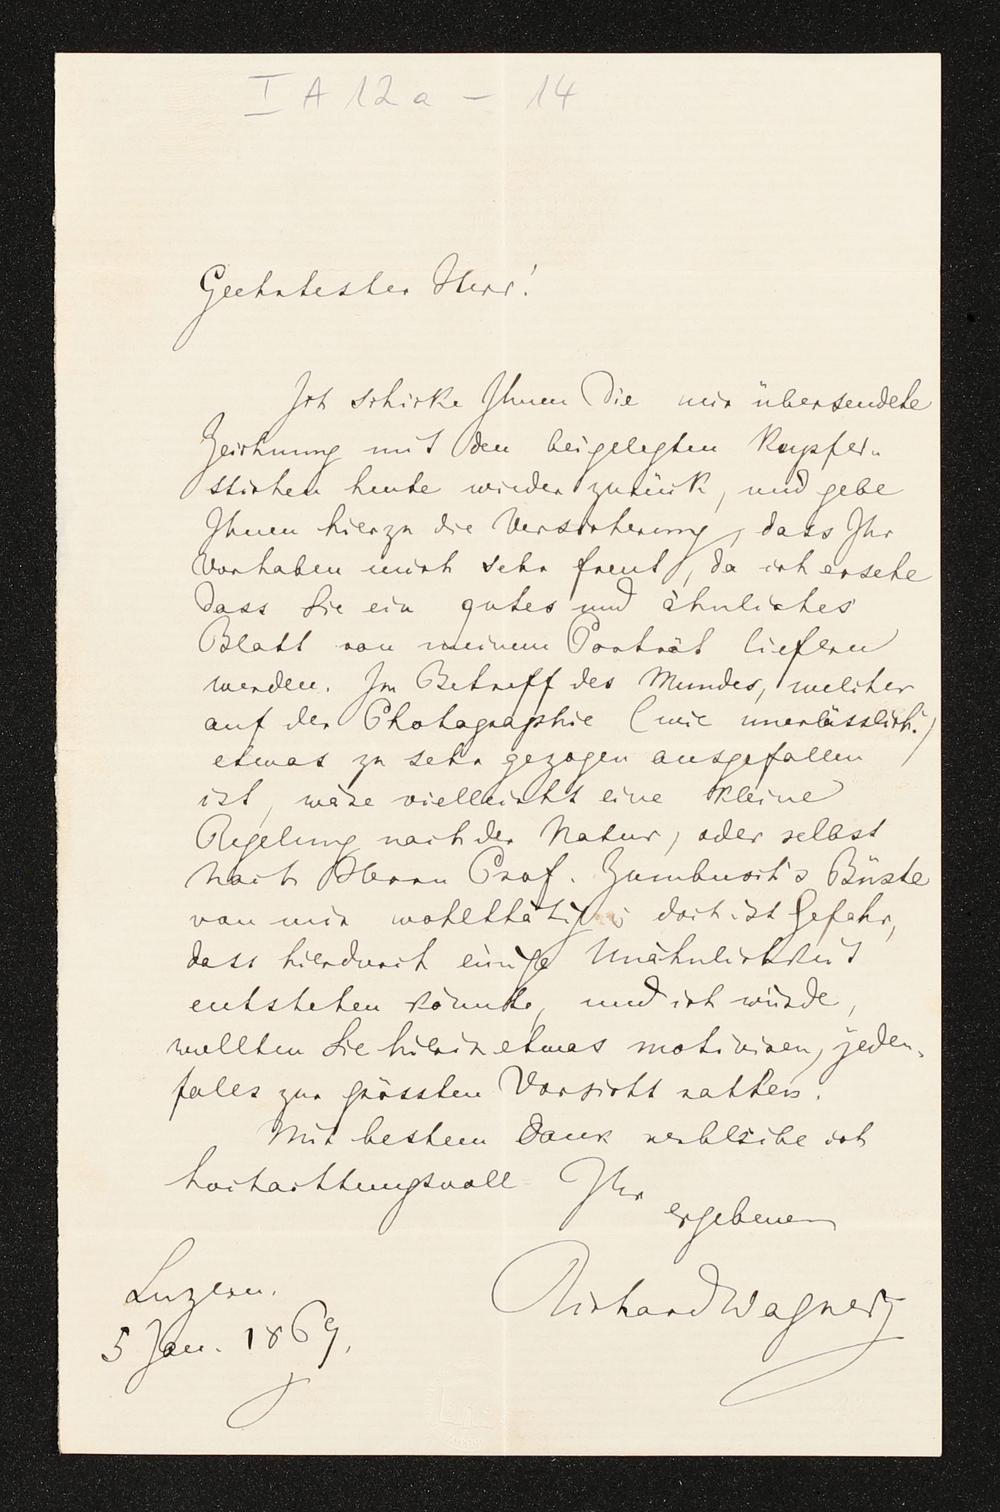 I A 12 a – 14
Geehrtester Herr!
Ich schicke Ihnen die mir übersendete
Zeichnung mit den beigelegten Kupfer-
stichen heute wieder zurück, und gebe
Ihnen hierzu die Versicherung, dass Ihr
Vorhaben mich sehr freut, da ich ersehe
dass Sie ein gutes und ähnliches
Blatt von meinem Porträt liefern
werden. Im Betreff des Mundes, welcher
auf der Photographie (wie unerlässlich!)
etwas zu sehr gezogen ausgefallen
ist, wäre vielleicht eine kleine
Regelung nach der Natur, oder selbst
nach Herrn Prof. Zumbusch's Büste
von mir wohlthätig; doch ist Gefahr,
dass hierdurch einige Unähnlichkeit
entstehen könnte, und ich würde,
wollten Sie hierin etwas motiviren, jeden-
falls zur grössten Vorsicht rathen.
Mit bestem Dank verbleibe ich
hochachtungsvoll Ihr
ergebener
Luzern.
RichardWagner
5 Jan. 1869.